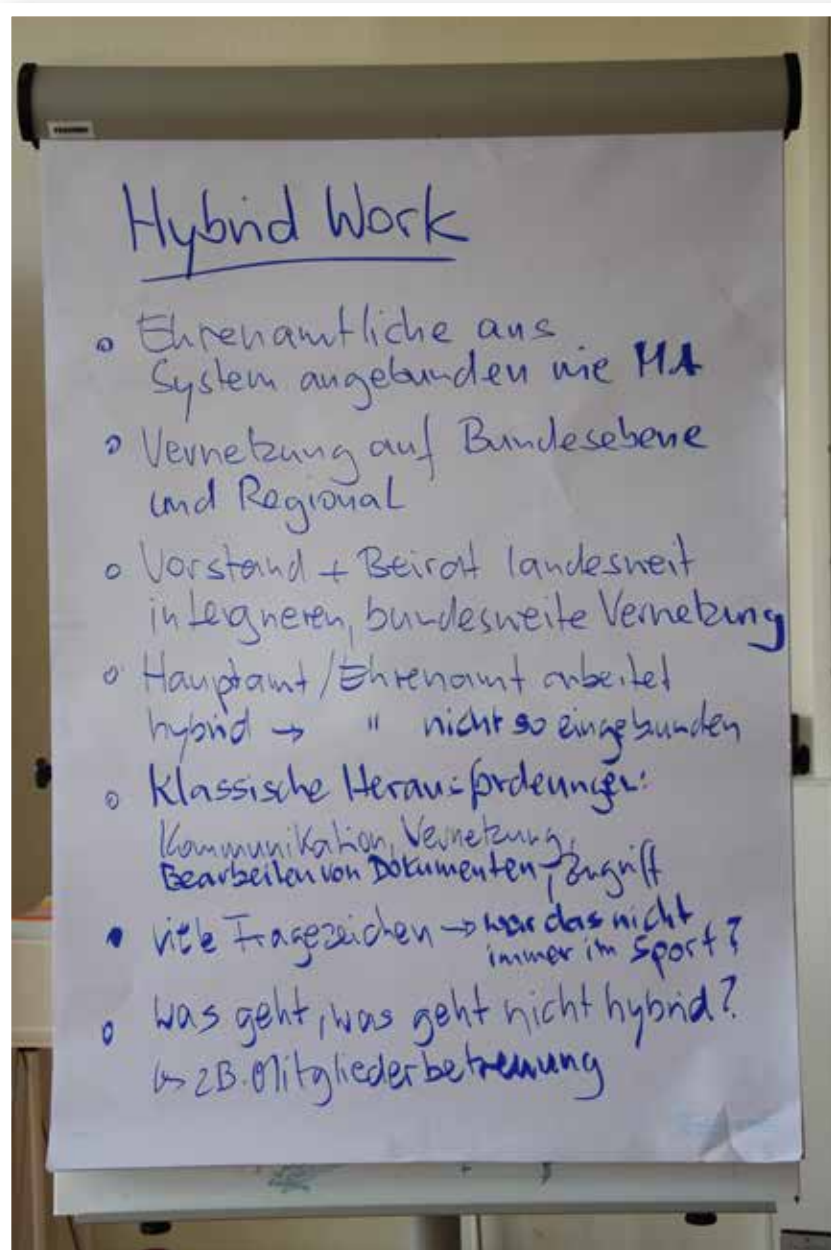 Hybrid Work
o Ehrenamtliche ans
System angebunden wie MA
o Vernetzung auf Bundesebene
und Regional
o Vorstand + Beirat landesweit
intergrieren, bundesweite Vernetzung
o Hauptamt / Ehrenamt arbeitet
hybrid → " nicht so eingebunden
o Klassische Herausforderungen:
Kommunikation, Vernetzung,
Bearbeiten von Dokumenten, Zugriff
• viele Fragezeichen → war das nicht
immer im Sport?
o was geht, was geht nicht hybrid?
↳ zB. Mitgliederbetreuung